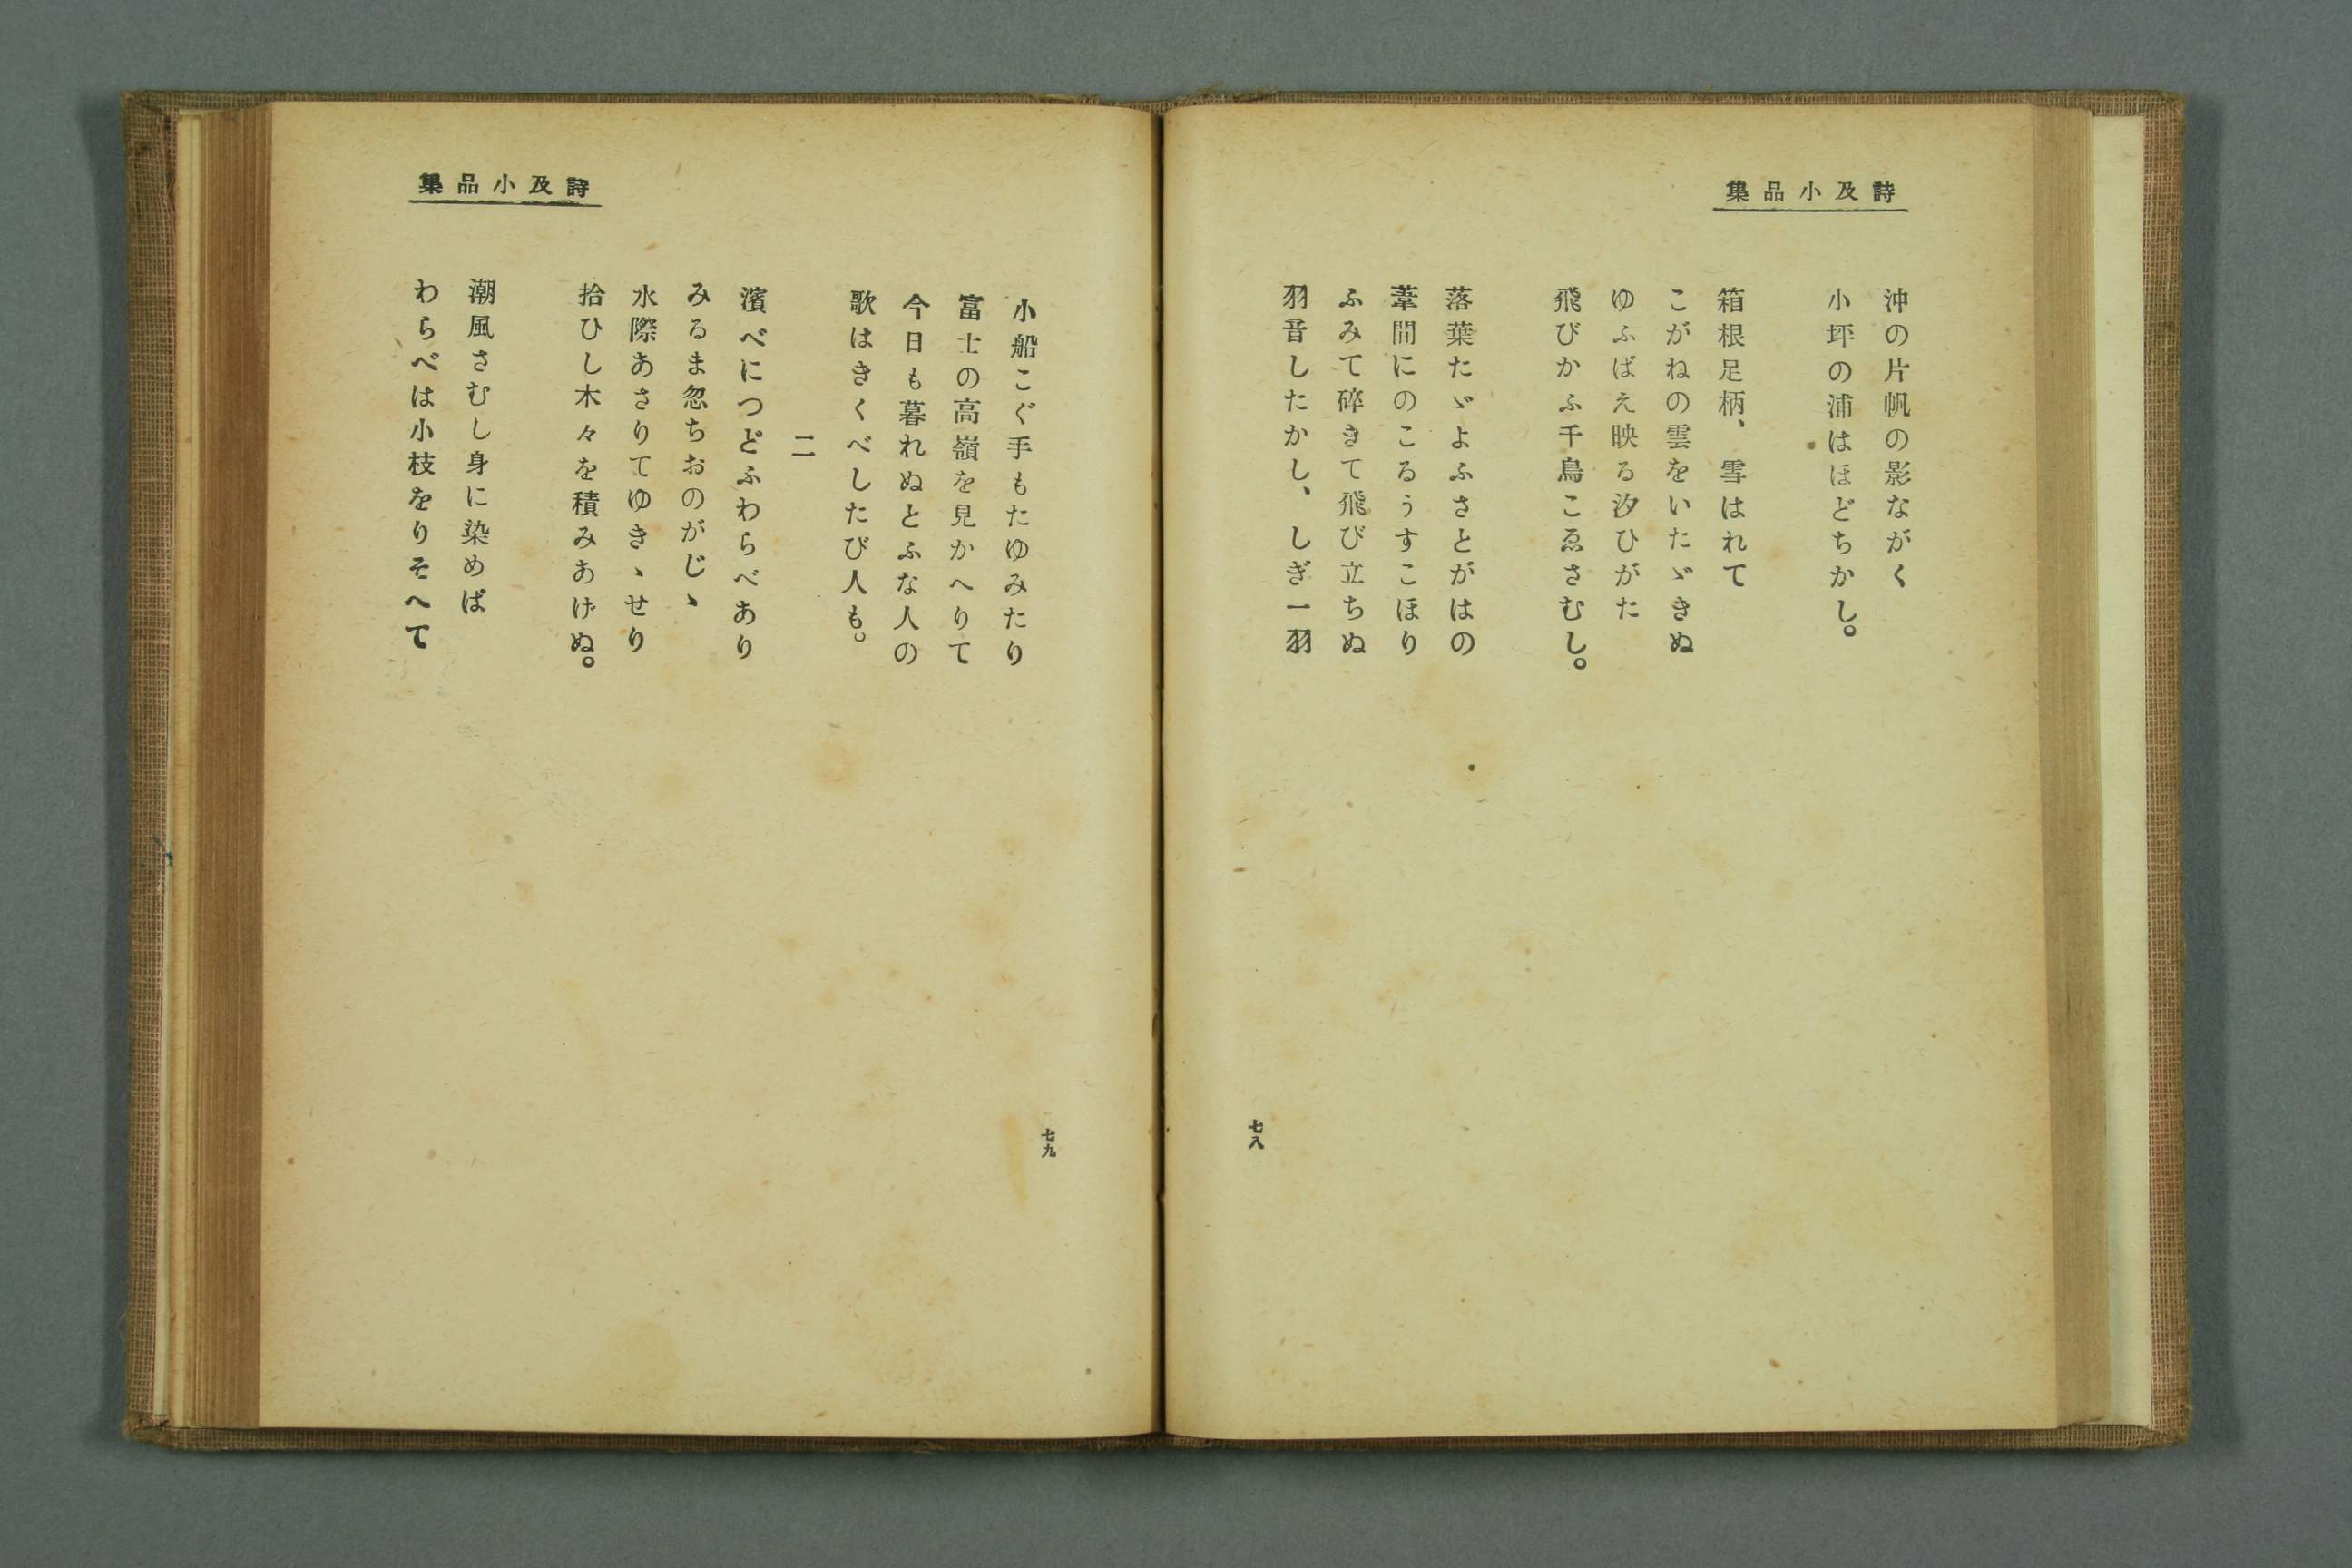 詩及小品集
沖の片帆の影ながく
小坪の浦はほどちかし。
箱根足柄、雪はれて
こがねの雲をいたゞきぬ
ゆふばえ映る汐ひがた
飛びかふ千鳥こゑさむし。
落葉たゞよふさとがはの
葦間にのこるうすこほり
ふみて碎きて飛び立ちぬ
羽音したかし、しぎ一羽
七八
詩及小品集
小船こぐ手もたゆみたり
富士の高嶺を見かへりて
今日も暮れぬとふな人の
歌はきくべしたび人も。
二
濱べにつどふわらべあり
みるま忽ちおのがじゝ
水際あさりてゆきゝせり
拾ひし木々を積みあげぬ。
潮風さむし身に染めば
わらべは小枝をりそへて
七九